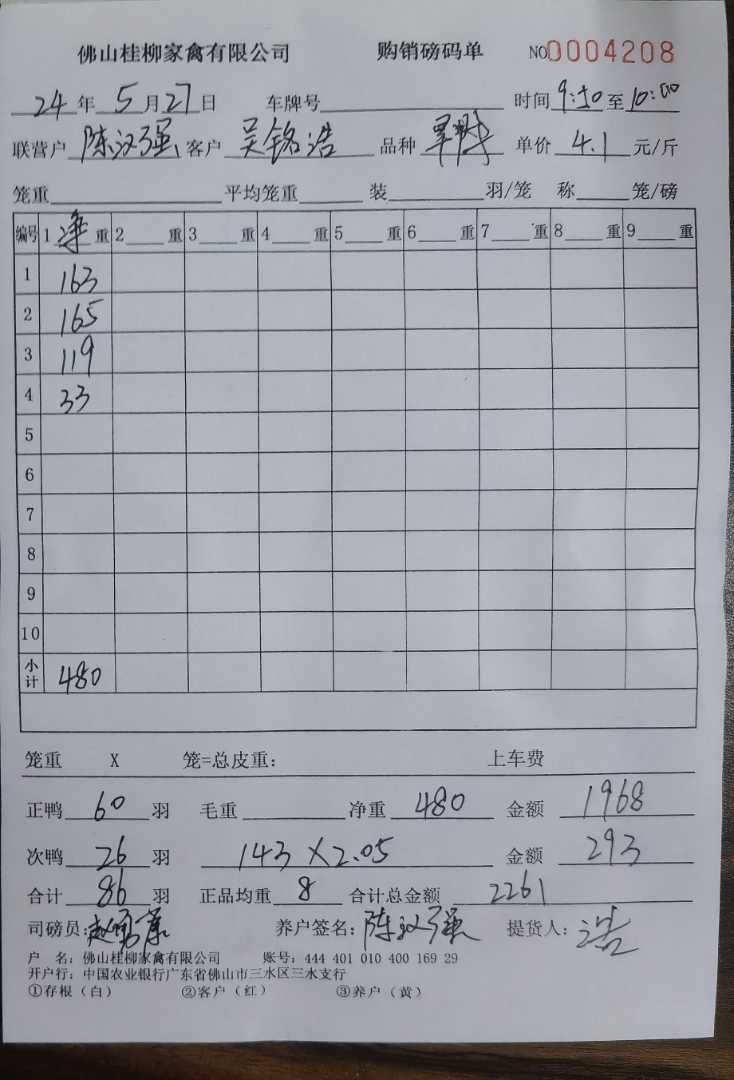 佛山桂柳家禽有限公司 购销磅码单 NO0004208
24年5月27日 车牌号 时间9:50至10:00
联营户 陈汉强 客户 吴铭浩 品种 单价 4.1 元/斤
笼重 平均笼重 装 羽/笼 称 笼/磅
编号 1净重 2 重 3 重 4 重 5 重 6 重 7 重 8 重 9 重
1 163
2 165
3 119
4 33
5
6
7
8
9
10
小计 480
笼重 X 笼=总皮重: 上车费
正鸭 60 羽 毛重 净重 480 金额 1968
次鸭 26 羽 143×2.05 金额 293
合计 86 羽 正品均重 8 合计总金额 2261
司磅员: 养户签名: 陈汉强 提货人: 浩
户 名: 佛山桂柳家禽有限公司 账号: 444 401 010 400 169 29
开户行: 中国农业银行广东省佛山市三水区三水支行
①存根(白) ②客户(红) ③养户(黄)